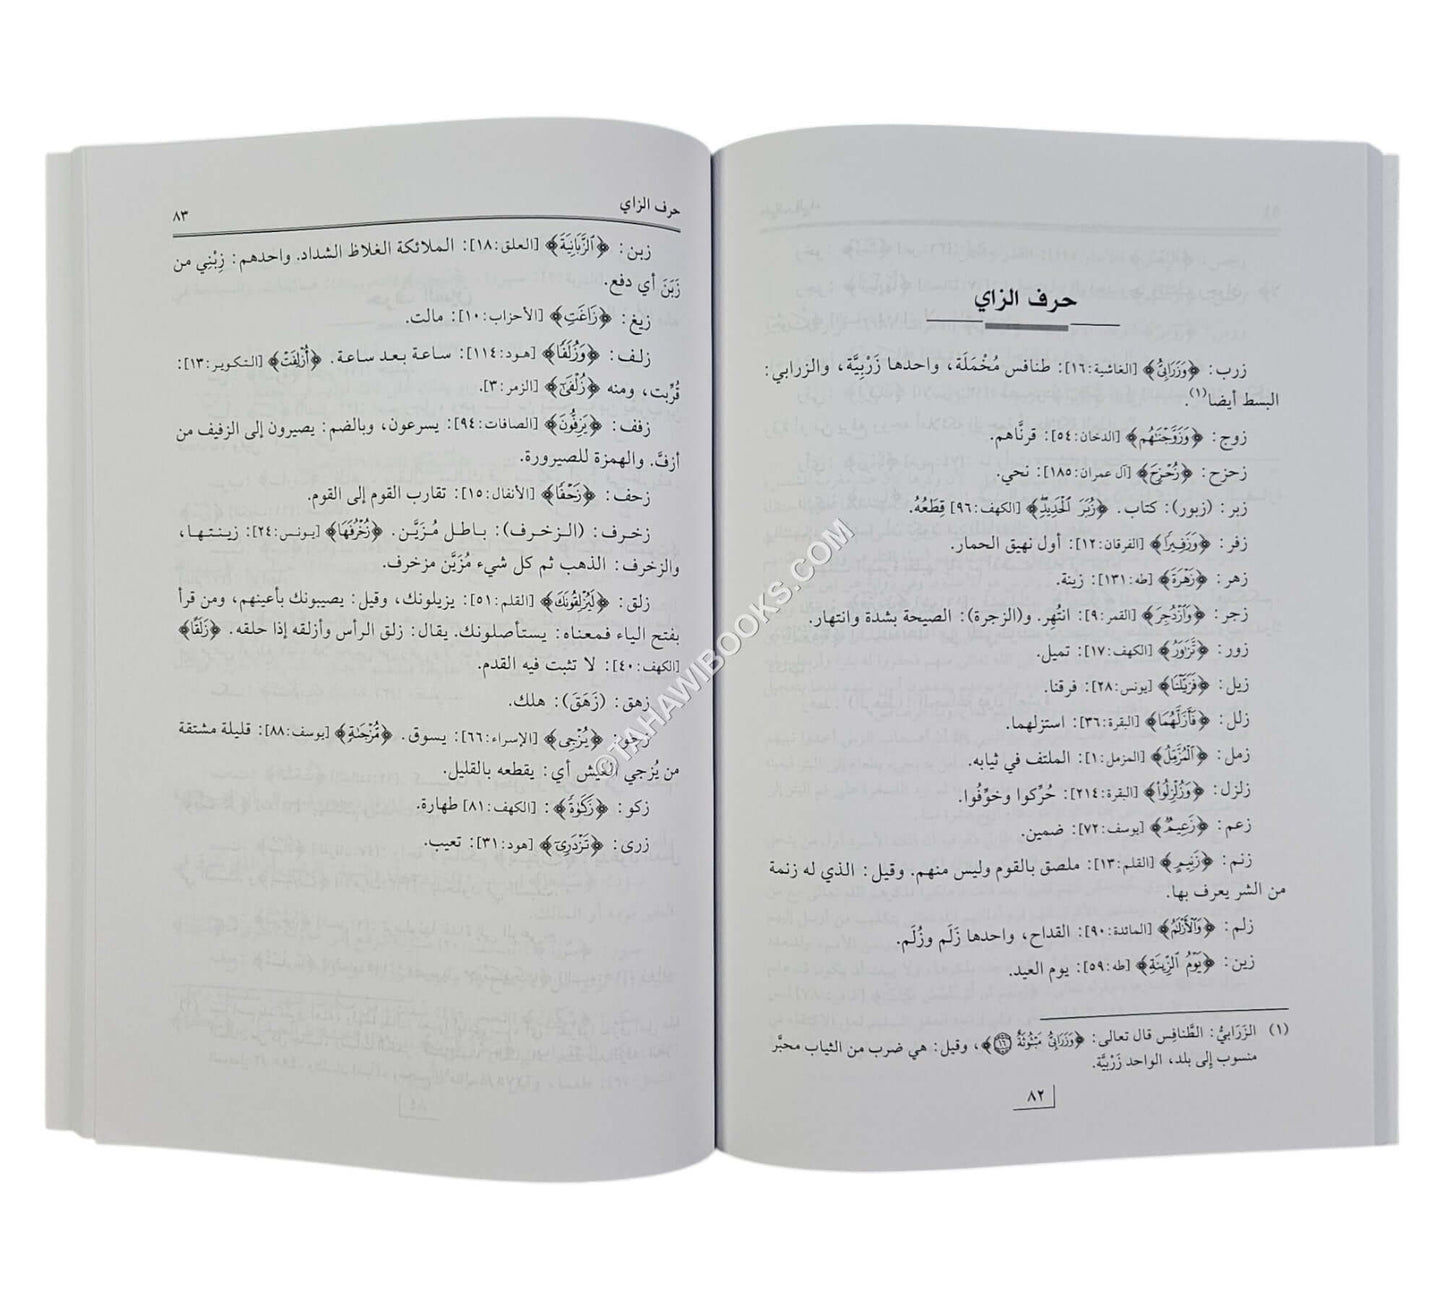 حرف الزاي
زرب: ﴿وَزَرَابِيُّ﴾ [الغاشية:١٦]: طنافس مُخْمَلَة، واحدها زَرْبِيَّة، والزرابي:
البسط أيضا(١).
زوج: ﴿وَزَوَّجْنَاهُم﴾ [الدخان:٥٤]: قرنَّاهم.
زحزح: ﴿زُحْزِحَ﴾ [آل عمران:١٨٥]: نحي.
زبر: (زبور): كتاب. ﴿زُبَرَ الْحَدِيدِ﴾ [الكهف:٩٦] قِطَعُهُ.
زفر: ﴿وَزَفِيرًا﴾ [الفرقان:١٢]: أول نهيق الحمار.
زهر: ﴿زَهْرَةَ﴾ [طه:١٣١]: زينة.
زجر: ﴿وَازْدُجِرَ﴾ [القمر:٩]: انتُهِر. و(الزجرة): الصيحة بشدة وانتهار.
زور: ﴿تَزَاوَرُ﴾ [الكهف:١٧]: تميل.
زيل: ﴿فَزَيَّلْنَا﴾ [يونس:٢٨]: فرقنا.
زلل: ﴿فَأَزَلَّهُمَا﴾ [البقرة:٣٦]: استزلهما.
زمل: ﴿الْمُزَّمِّلُ﴾ [المزمل:١]: الملتف في ثيابه.
زلزل: ﴿وَزُلْزِلُوا﴾ [البقرة:٢١٤]: حُرِّكوا وخوِّفُوا.
زعم: ﴿زَعِيمٌ﴾ [يوسف:٧٢]: ضمين.
زنم: ﴿زَنِيمٍ﴾ [القلم:١٣]: ملصق بالقوم وليس منهم. وقيل: الذي له زنمة
من الشر يعرف بها.
زلم: ﴿وَالْأَزْلَامُ﴾ [المائدة:٩٠]: القداح، واحدها زَلَم وزُلَم.
زين: ﴿يَوْمُ الزِّينَةِ﴾ [طه:٥٩]: يوم العيد.
(١) الزَرَابيُّ: الطَّنافِس قال تعالى: ﴿وَزَرَابِيُّ مَبْثُوثَةٌ ١٦﴾، وقيل: هي ضرب من الثياب محبَّر
منسوب إلى بلد، الواحد زَرْبِيَّة.
٨٢
حرف الزاي ٨٣
زبن: ﴿الزَّبَانِيَةَ﴾ [العلق:١٨]: الملائكة الغلاظ الشداد. واحدهم: زِبْنِي من
زَبَنَ أي دفع.
زيغ: ﴿زَاغَتِ﴾ [الأحزاب:١٠]: مالت.
زلف: ﴿وَزُلَفًا﴾ [هود:١١٤]: ساعة بعد ساعة. ﴿أُزْلِفَتْ﴾ [التكوير:١٣]:
قُرِّبت، ومنه ﴿زُلْفَى﴾ [الزمر:٣].
زفف: ﴿يَزِفُّونَ﴾ [الصافات:٩٤]: يسرعون، وبالضم: يصيرون إلى الزفيف من
أزفَّ. والهمزة للصيرورة.
زحف: ﴿زَحْفًا﴾ [الأنفال:١٥]: تقارب القوم إلى القوم.
زخرف: (الزخرف): باطل مُزَيَّن. ﴿زُخْرُفَهَا﴾ [يونس:٢٤]: زينتها،
والزخرف: الذهب ثم كل شيء مُزَيَّن مزخرف.
زلق: ﴿لَيُزْلِقُونَكَ﴾ [القلم:٥١]: يزيلونك، وقيل: يصيبونك بأعينهم، ومن قرأ
بفتح الياء فمعناه: يستأصلونك. يقال: زلق الرأس وأزلقه إذا حلقه. ﴿زَلَقًا﴾
[الكهف:٤٠]: لا تثبت فيه القدم.
زهق: (زَهَقَ): هلك.
زجو: ﴿يُزْجِي﴾ [الإسراء:٦٦]: يسوق. ﴿مُزْجَاةٍ﴾ [يوسف:٨٨]: قليلة مشتقة
من يُزجي العيش أي: يقطعه بالقليل.
زكو: ﴿زَكَوٰةً﴾: [الكهف:٨١] طهارة.
زرى: ﴿تَزْدَرِي﴾ [هود:٣١]: تعيب.
©TAHAWIBOOKS.COM